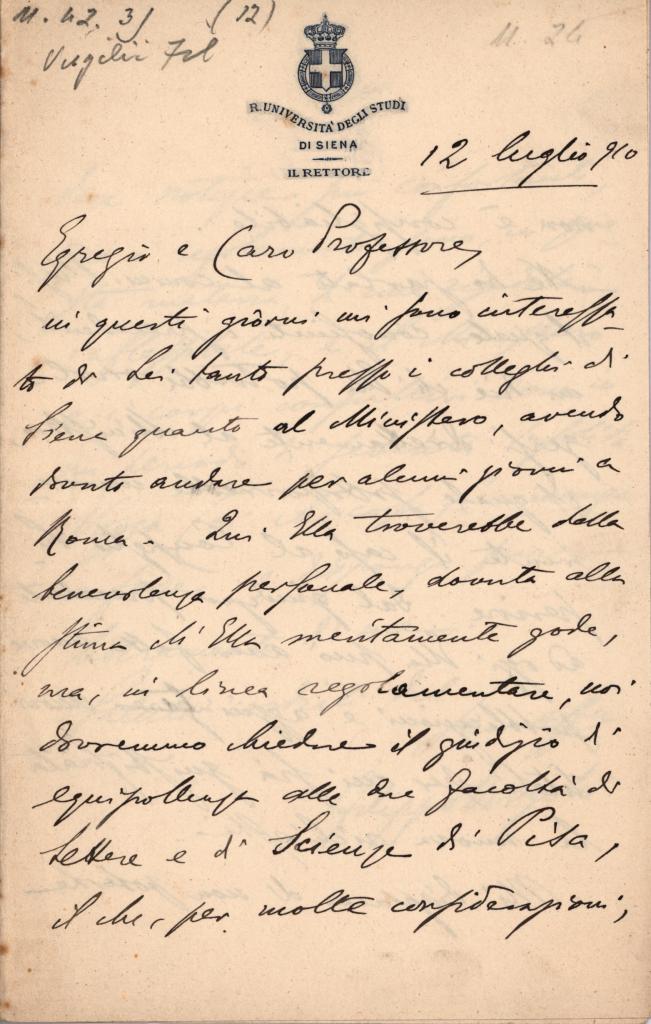 11. 42. 3) (12)
Virgilii Fil
11. 26
R. UNIVERSITA' DEGLI STUDI
DI SIENA
IL RETTORE
12 luglio 910
Egregio e Caro Professore,
in questi giorni mi sono interessa-
to di Lei tanto presso i colleghi di
Siena quanto al Ministero, avendo
dovuto andare per alcuni giorni a
Roma. Qui Ella troverebbe della
benevolenza personale, dovuta alla
stima ch'Ella meritamente gode,
ma, in linea regolamentare, noi
dovremmo chiedere il giudizio d'
equipollenza alle due facoltà di
Lettere e di Scienze di Pisa,
il che, per molte considerazioni,